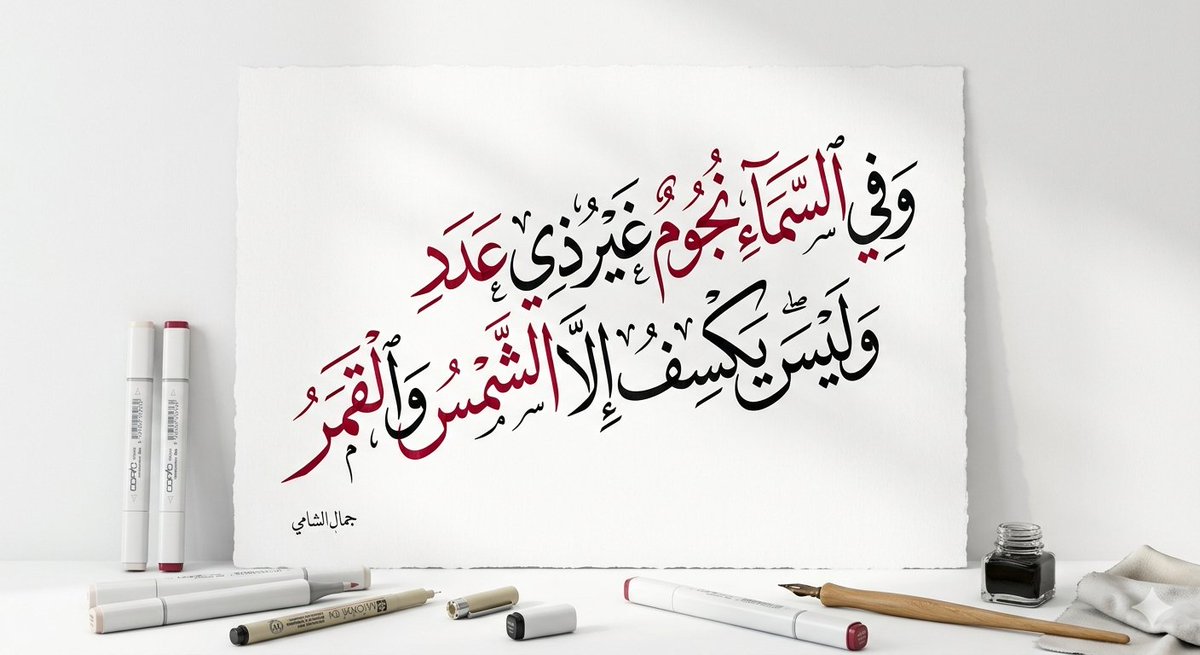 وَفِي ٱلسَّمَآءِ نُجُومٌ غَيْرُ ذِي عَدَدِ
وَلَيْسَ يَكْسِفُ إِلَّا الشَّمْسُ وَٱلْقَمَرُ
جمال الشامي
COPIC
COPIC